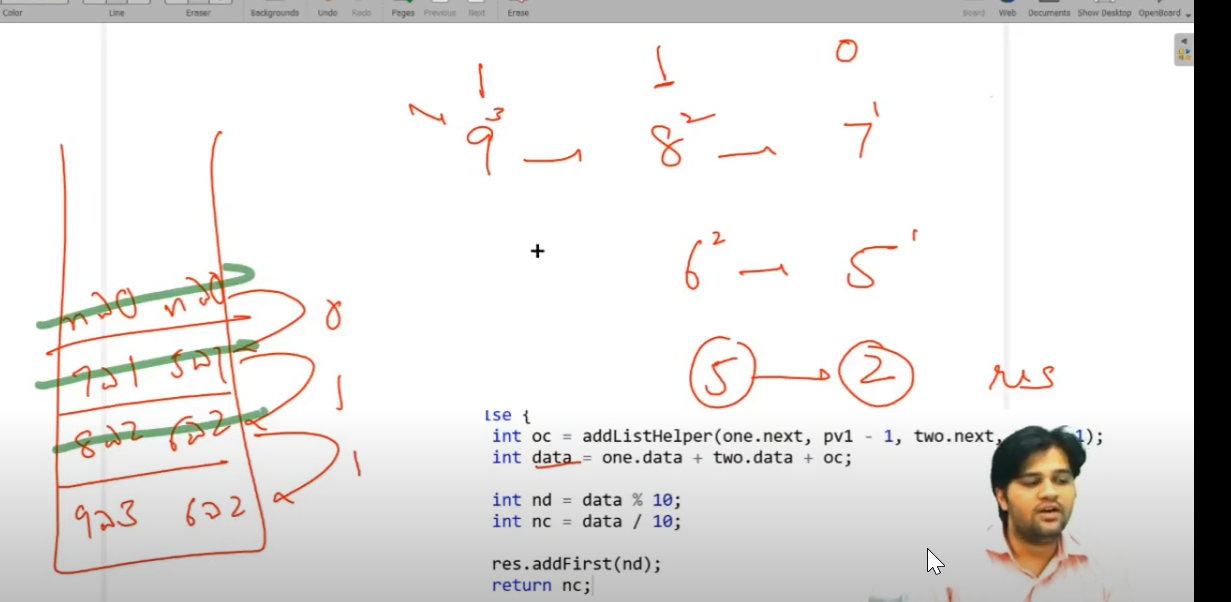 Color Line Eraser Backgrounds Undo Redo Pages Previous Next Erase Board Web Documents Show Desktop OpenBoard
1 1 0
9³ → 8² → 7¹
+
6² → 5¹
5 → 2 res
0
1
1
lse {
int oc = addListHelper(one.next, pv1 - 1, two.next, 1);
int data = one.data + two.data + oc;
int nd = data % 10;
int nc = data / 10;
res.addFirst(nd);
return nc;